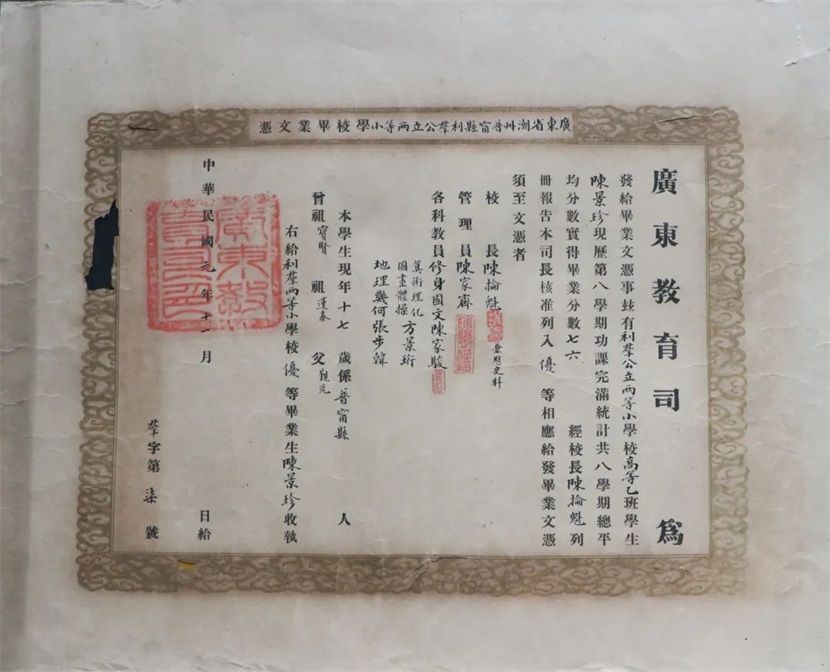 廣東省潮州普甯縣利羣公立兩等小學校畢業文憑
廣東教育司 為
發給畢業文憑事玆有利羣公立兩等小學校高等乙班學生
陳景珍現歷第八學期功課完滿統計共八學期總平
均分數實得畢業分數七六 經校長陳掄魁列
冊報告本司長核准列入優等相應給發畢業文憑
須至文憑者
校長陳掄魁 兼歷史科
管理員陳家齋
各科教員修身國文陳家駿
算術理化
圖畫體操 方景珩
地理幾何張步韓
本學生現年十七歲係普甯縣人
曾祖寶賢 祖蓮泰 父觀光
右給利羣兩等小學校優等畢業生陳景珍收執
中華民國元年十 月 日給
羣字第柒號
廣東教
司印